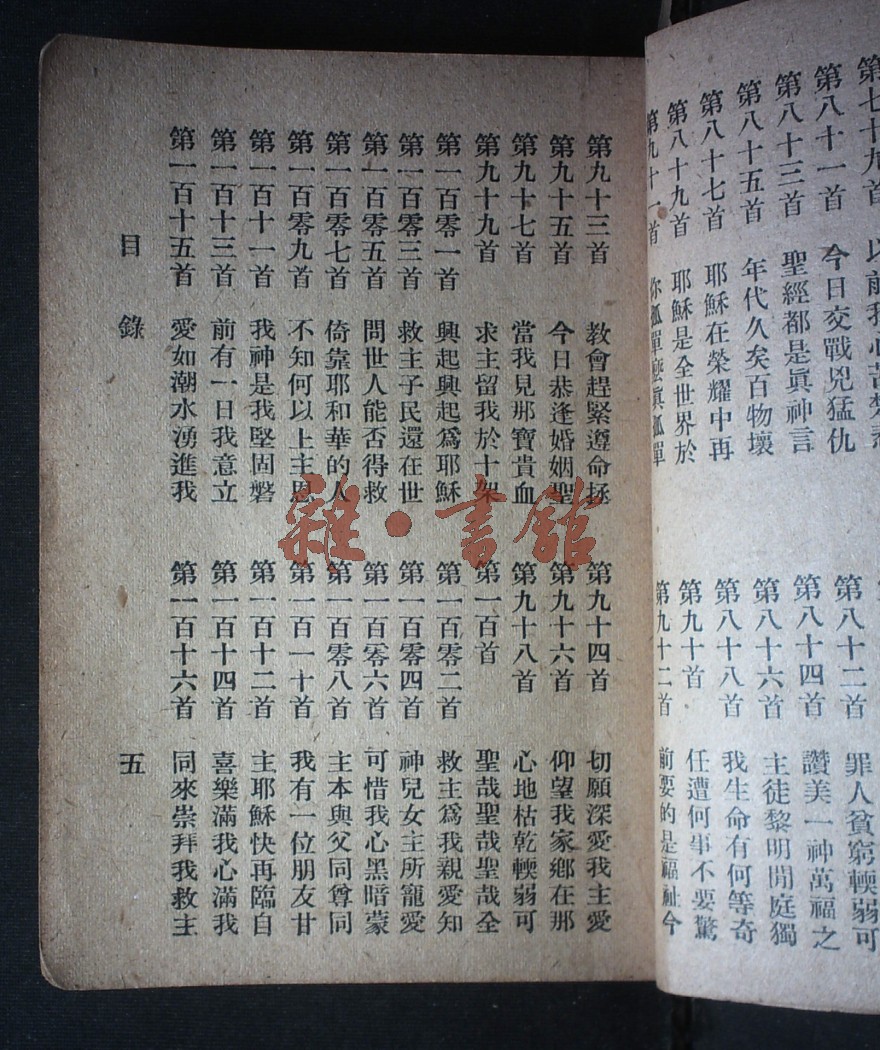 第七十九首 以前我心苦楚
第八十一首 今日交戰兇猛仇
第八十三首 聖經都是眞神言
第八十五首 年代久矣百物壞
第八十七首 耶穌在榮耀中再
第八十九首 耶穌是全世界於
第九十一首 你孤單麽眞孤單
第八十二首 罪人貧窮輭弱可
第八十四首 讚美一神萬福之
第八十六首 主徒黎明閒庭獨
第八十八首 我生命有何等奇
第九十首 任遭何事不要驚
第九十二首 前要的是福祉今
第九十三首 教會趕緊遵命拯
第九十五首 今日恭逢婚姻聖
第九十七首 當我見那寶貴血
第九十九首 求主留我於十架
第一百零一首 興起興起爲耶穌
第一百零三首 救主子民還在世
第一百零五首 問世人能否得救
第一百零七首 倚靠耶和華的人
第一百零九首 不知何以上主恩
第一百十一首 我神是我堅固磐
第一百十三首 前有一日我意立
第一百十五首 愛如潮水湧進我
第九十四首 切願深愛我主愛
第九十六首 仰望我家鄉在那
第九十八首 心地枯乾輭弱可
第一百首 聖哉聖哉聖哉全
第一百零二首 救主爲我親愛知
第一百零四首 神兒女主所寵愛
第一百零六首 可惜我心黑暗蒙
第一百零八首 主本與父同尊同
第一百一十首 我有一位朋友甘
第一百十二首 主耶穌快再臨自
第一百十四首 喜樂滿我心滿我
第一百十六首 同來崇拜我救主
目錄
五
雜·書館